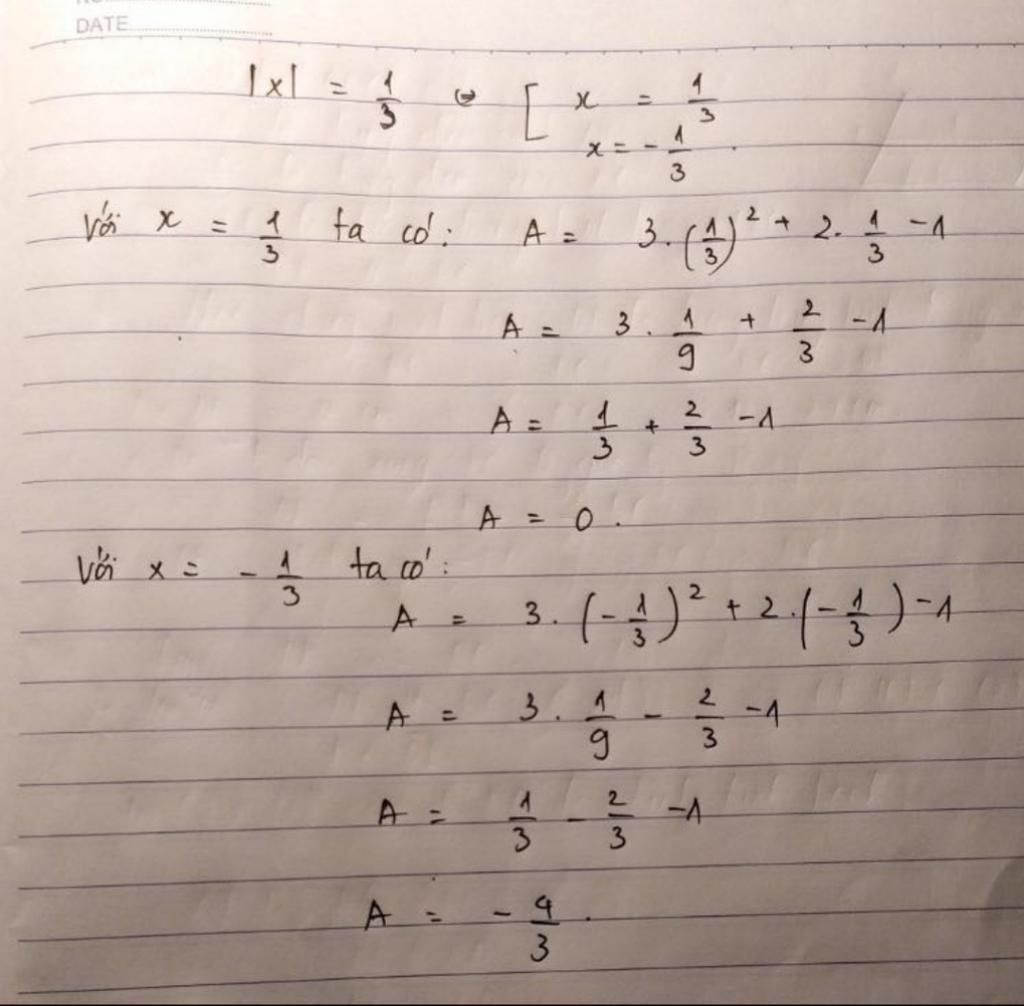 DATE
|x| = 1/3 ⇔ [ x = 1/3
x = -1/3.
Với x = 1/3 ta có: A = 3.(1/3)² + 2.1/3 - 1
A = 3.1/9 + 2/3 - 1
A = 1/3 + 2/3 - 1
A = 0.
Với x = -1/3 ta có:
A = 3.(-1/3)² + 2.(-1/3) - 1
A = 3.1/9 - 2/3 - 1
A = 1/3 - 2/3 - 1
A = -4/3.